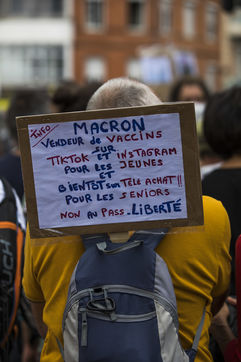 Info
MACRON
VENDEUR DE VACCINS
SUR
TIKTOK ET INSTAGRAM
POUR LES JEUNES
ET
BIENTÔT SUR TÉLÉ ACHAT !!
POUR LES SENIORS
NON AU PASS. LIBERTÉ